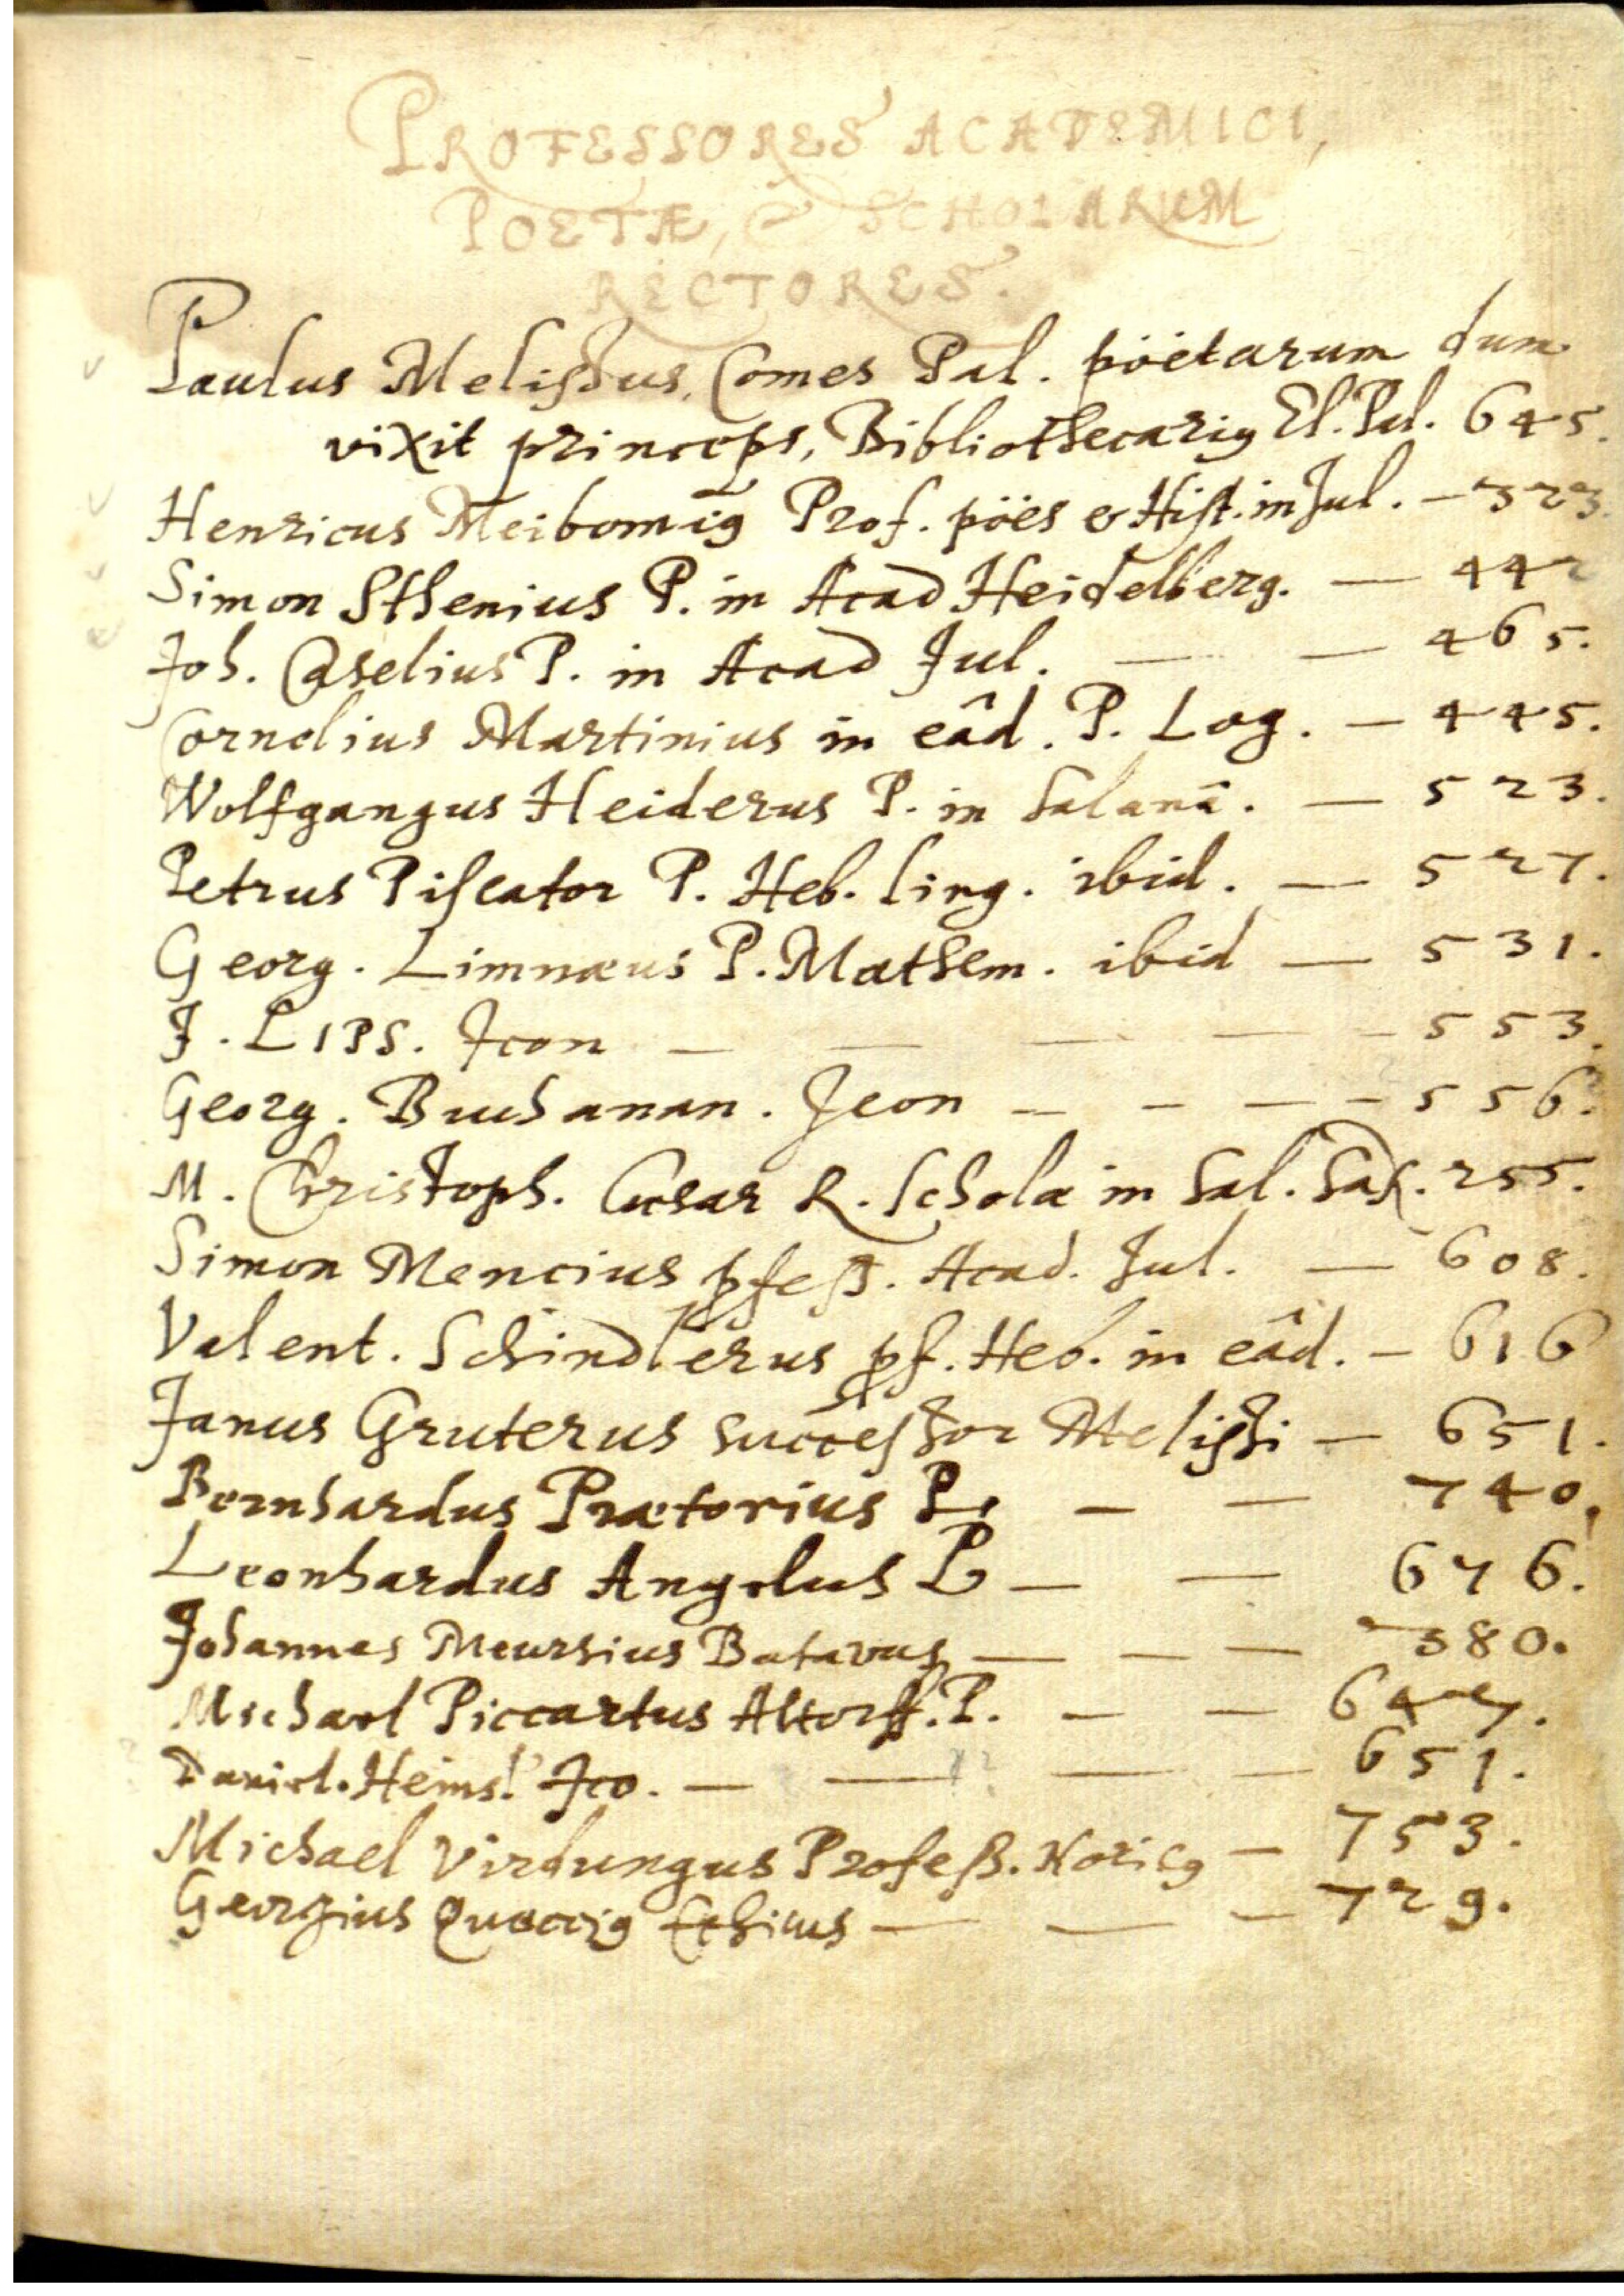 PROFESSORES ACADEMICI,
POETÆ, & SCHOLARUM
RECTORES.
Paulus Melissus, Comes Pal. pöetarum dum
vixit princeps, Bibliothecarius El. Pal. 645.
Henricus Meibomius Prof. pöes & Hist. in Jul. — 323.
Simon Sthenius P. in Acad Heidelberg. — 442
Joh. Caselius P. in Acad Jul. — — 465.
Cornelius Martinius in eâd. P. Log. — 445.
Wolfgangus Heiderus P. in Salanâ. — 523.
Petrus Piscator P. Heb. ling. ibid. — 527.
Georg. Limnæus P. Mathem. ibid — 531.
J. LIPS. Icon — — — — 553.
Georg. Buchanan. Icon — — — — 556.
M. Christoph. Cæsar R. Scholæ in Hal. Sax. 255.
Simon Mencius pfess. Acad. Jul. — 608.
Valent. Schindlerus pf. Heb. in eâd. — 616
Janus Gruterus successor Melissi — 651.
Bernhardus Prætorius P. — — 740.
Leonhardus Angelus P — — 676.
Johannes Meursius Batavus — — — 380.
Michael Piccartus Altorff. P. — — 647.
Daniel. Heins. Ico. — — — — 651.
Michael Virdungus Profess. Noricus — 753.
Georgius Queccius Ethicus — — — 729.